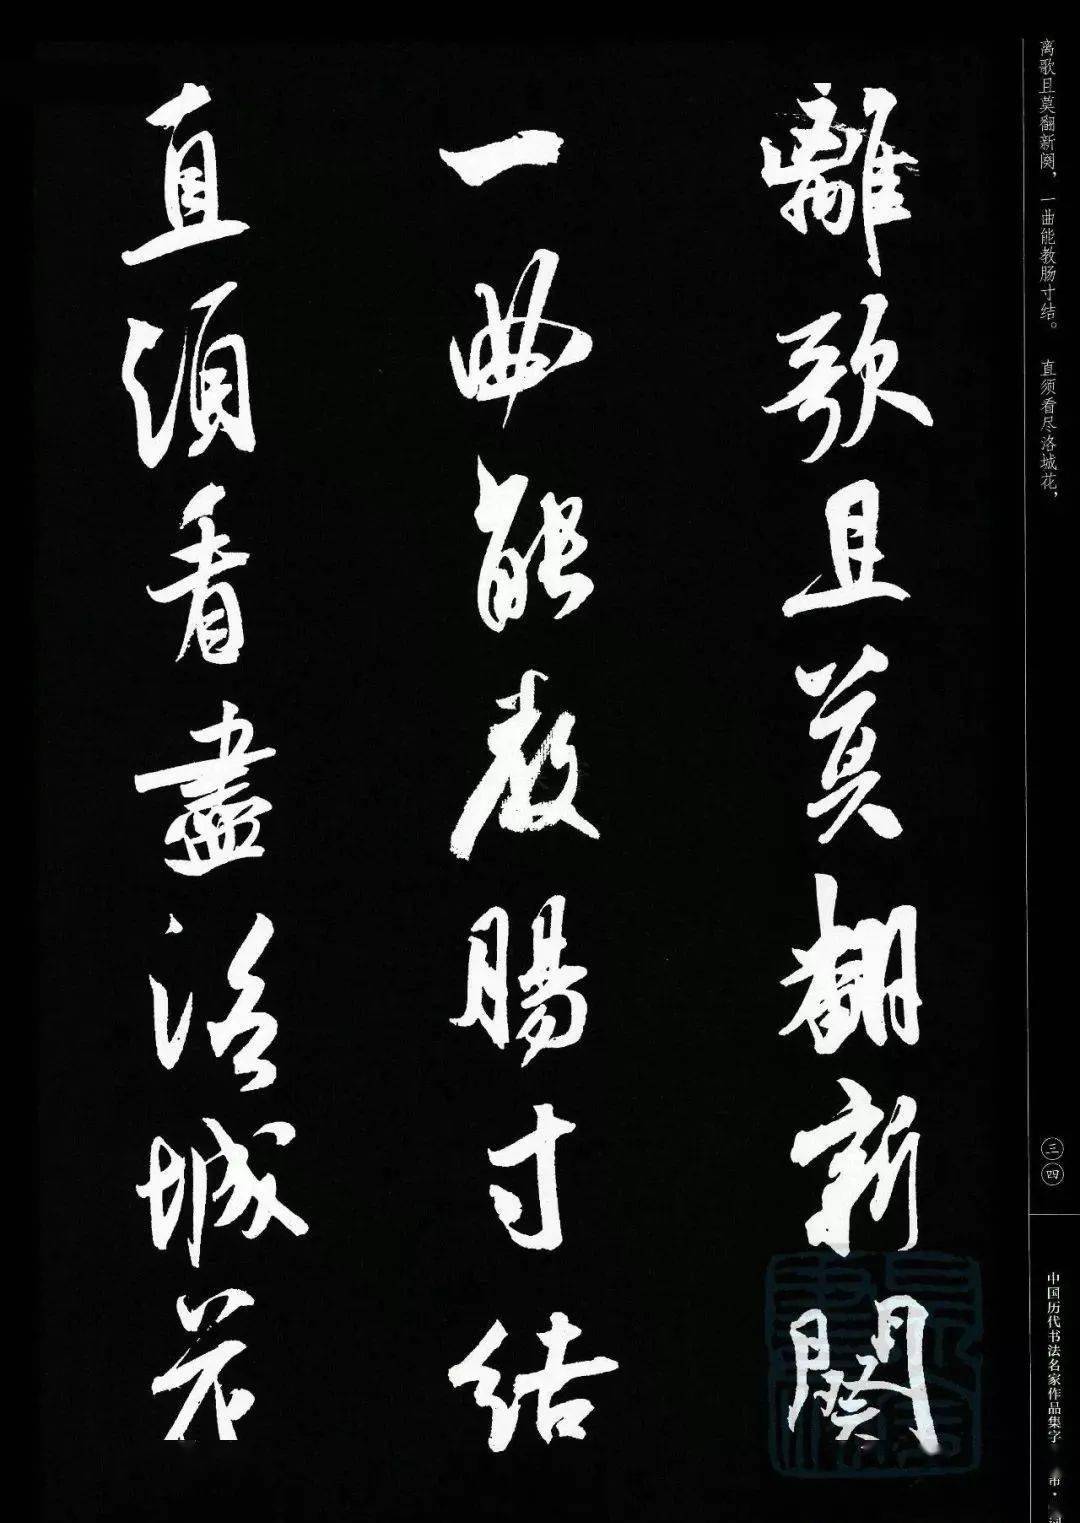 離歌且莫翻新闋
一曲能教腸寸結
直須看盡洛城花
离歌且莫翻新阕，一曲能教肠寸结。 直须看尽洛城花，
三四
中国历代书法名家作品集字